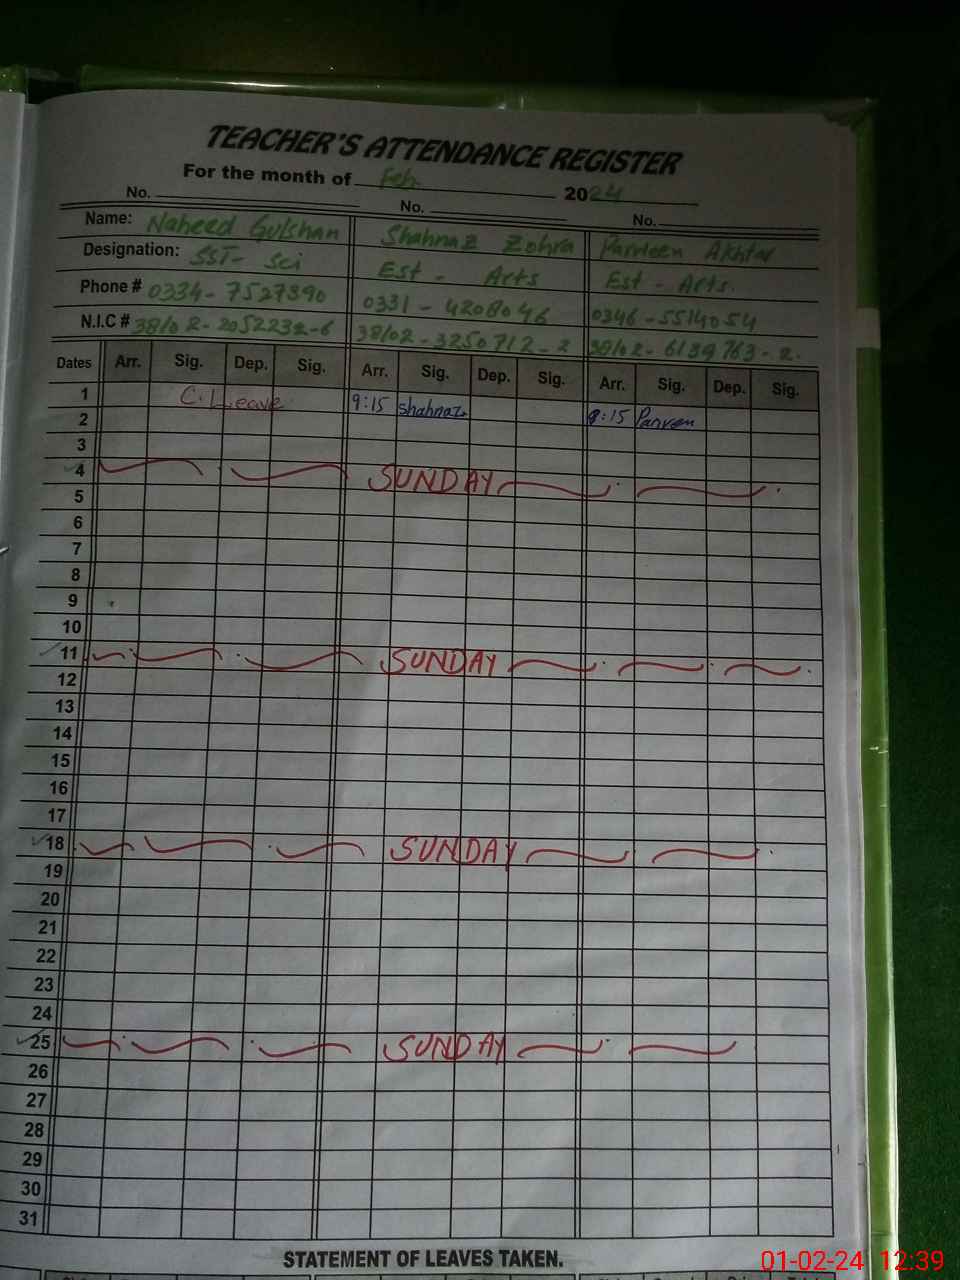 TEACHER'S ATTENDANCE REGISTER
For the month of Feb 2024
No. No. No.
Name: Naheed Gulshan Shahnaz Zohra Parveen Akhtar
Designation: SST- Sci Est - Arts Est - Arts.
Phone # 0334-7527390 0331-4208046 0346-5514054
N.I.C # 38102-2052232-6 38102-3250712-2 38102-6139763-2.
Dates Arr. Sig. Dep. Sig. Arr. Sig. Dep. Sig. Arr. Sig. Dep. Sig.
1 C. Leave 9:15 shahnaz 9:15 Parveen
2
3
4 SUNDAY
5
6
7
8
9
10
11 SUNDAY
12
13
14
15
16
17
18 SUNDAY
19
20
21
22
23
24
25 SUNDAY
26
27
28
29
30
31
STATEMENT OF LEAVES TAKEN.
01-02-24 12:39